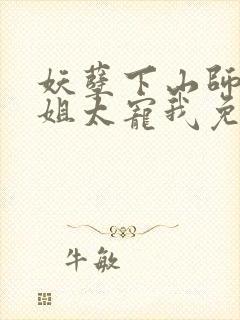 妖孽下山师
姐太寵我免
牛敏